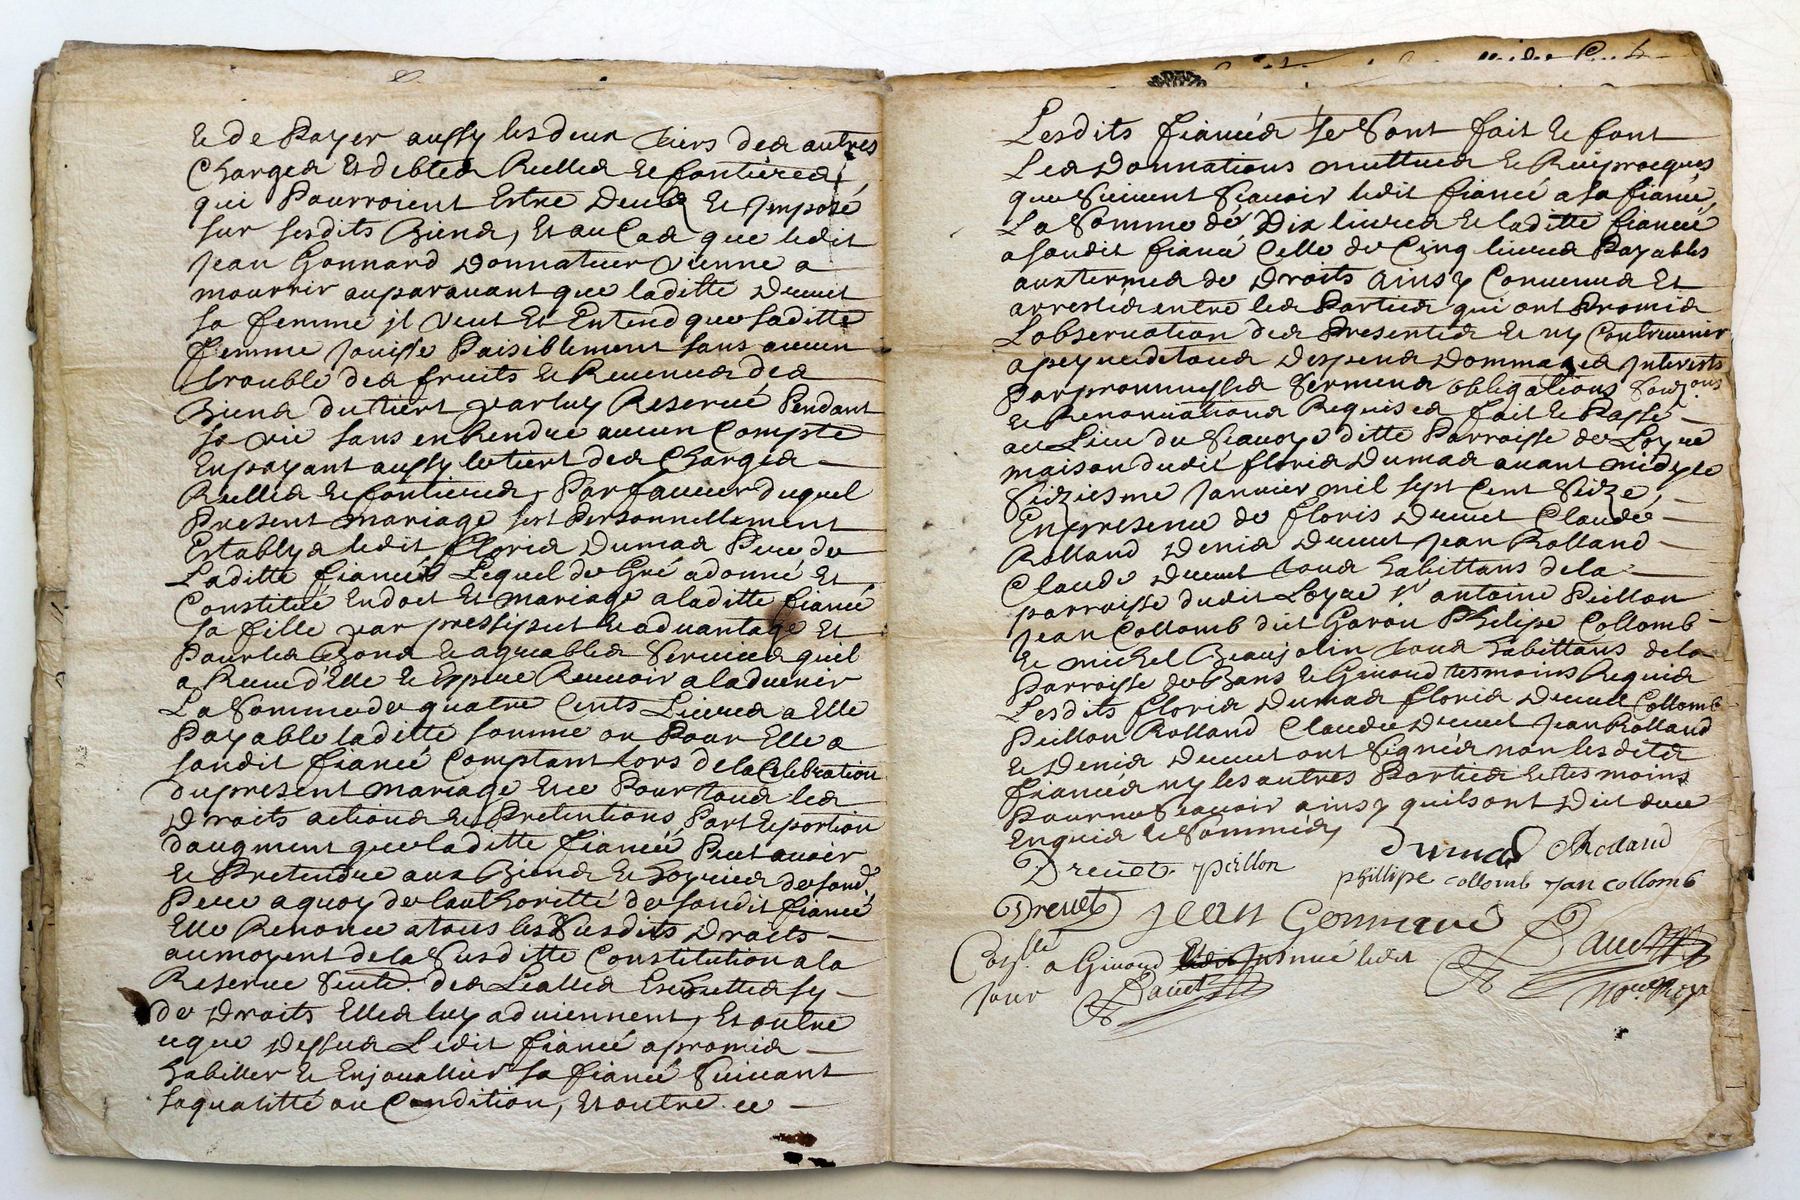 Et de Payer aussy les deux tiers des autres
Charges Et debtes Reelles Et fontieres
qui Pourroient Estre Deues Et Imposé
sur sesdits Biens, Et au Cas que ledit
Jean Gonnard Donnateur vienne a
mourrir auparavant que laditte Drevet
sa femme jl veut Et Entend que saditte
femme Jouisse Paisiblement sans aucun
trouble des fruits Et Revenus des
Biens du tiert par luy Reservé Pendant
sa vie sans en Rendre aucun Compte
En payant aussy le tiert des Charges
Reelles Et fontieres, Par faveur duquel
Present mariage sest Personnellement
Establys ledit Floris Dumas Pere de
Laditte fiancée Lequel de Gré a donné Et
Constitué En dot Et mariage a laditte fiancé
sa fille par pressiput Et advantage Et
Pour les Bons Et agreables Services quil
a Receu d'Elle Et Espere Recevoir a ladvenir
La Somme de quatre Cents Livres a Elle
Payable laditte somme ou Pour Elle a
sondit fiancé Comptant lors de la Celebration
du present mariage Et ce Pour tous les
Droits actions Et Pretentions Part Et portion
daugment que laditte fiancée Peut avoir
Et Pretendre aux Biens Et hoyries de sond.
Pere a quoy de lauthoritté de sondit fiancé
Elle Renonce a tous les Susdits Droits
au moyent de la Susditte Constitution a la
Reserve Seulle. des Lealles Escheuttes sy
de Droits Elles luy adviennent, Et outre
ce que Dessus Ledit fiancé a promis
habiller Et Enjouallier sa fiancé Suivant
sa qualitté ou Condition, Et outre ce
Lesdits fiancés se Sont fait Et font
Les Donnations mutues Et Reciproques
que Suivent Scavoir ledit fiancé a sa fiancé,
La Somme de Dix livres Et laditte fiancée
a sondit fiancé Celle de Cinq livres Payables
aux termes de Droits Ainsy Convenus Et
arrestés entre les Parties qui ont Promis
Lobservation des Presentes Et ny Contrevenir
a peyne de tous Despens Dommages Interests
Par promesses Serments obligations Sous.ons
Et Renonciations Requises fait Et Passé
au Lieu du ditte Parroisse de Loyre
maison dudit floris Dumas avant midy le
Seiziesme Janvier mil sept Cent Seize,
En presence de Floris Drevet Claude
Rolland Denis Drevet Jean Rolland
Claude Drevet tous habittans de la
parroisse dudit Loyre Sr antoine Peillon
Jean Collomb dict Garon Philipe Collomb
Et michel Beaujolin tous habittans de la
Parroisse de Bans Et Givord tesmoins Requis
Lesdits Floris Dumas Floris Drevet Collomb
Peillon Rolland Claude Drevet Jean Rolland
Et Denis Drevet ont Signés non lesdites
fiancés ny les autres Parties Et tesmoins
Pour ne Scavoir ainsy quils ont Dict de ce
Enquis Et Sommés,
Dumas CRolland
Drevet peillon phillipe collomb Jan collomb
Drevet Jean Gonnard
a Givord Insinué ledit
jour